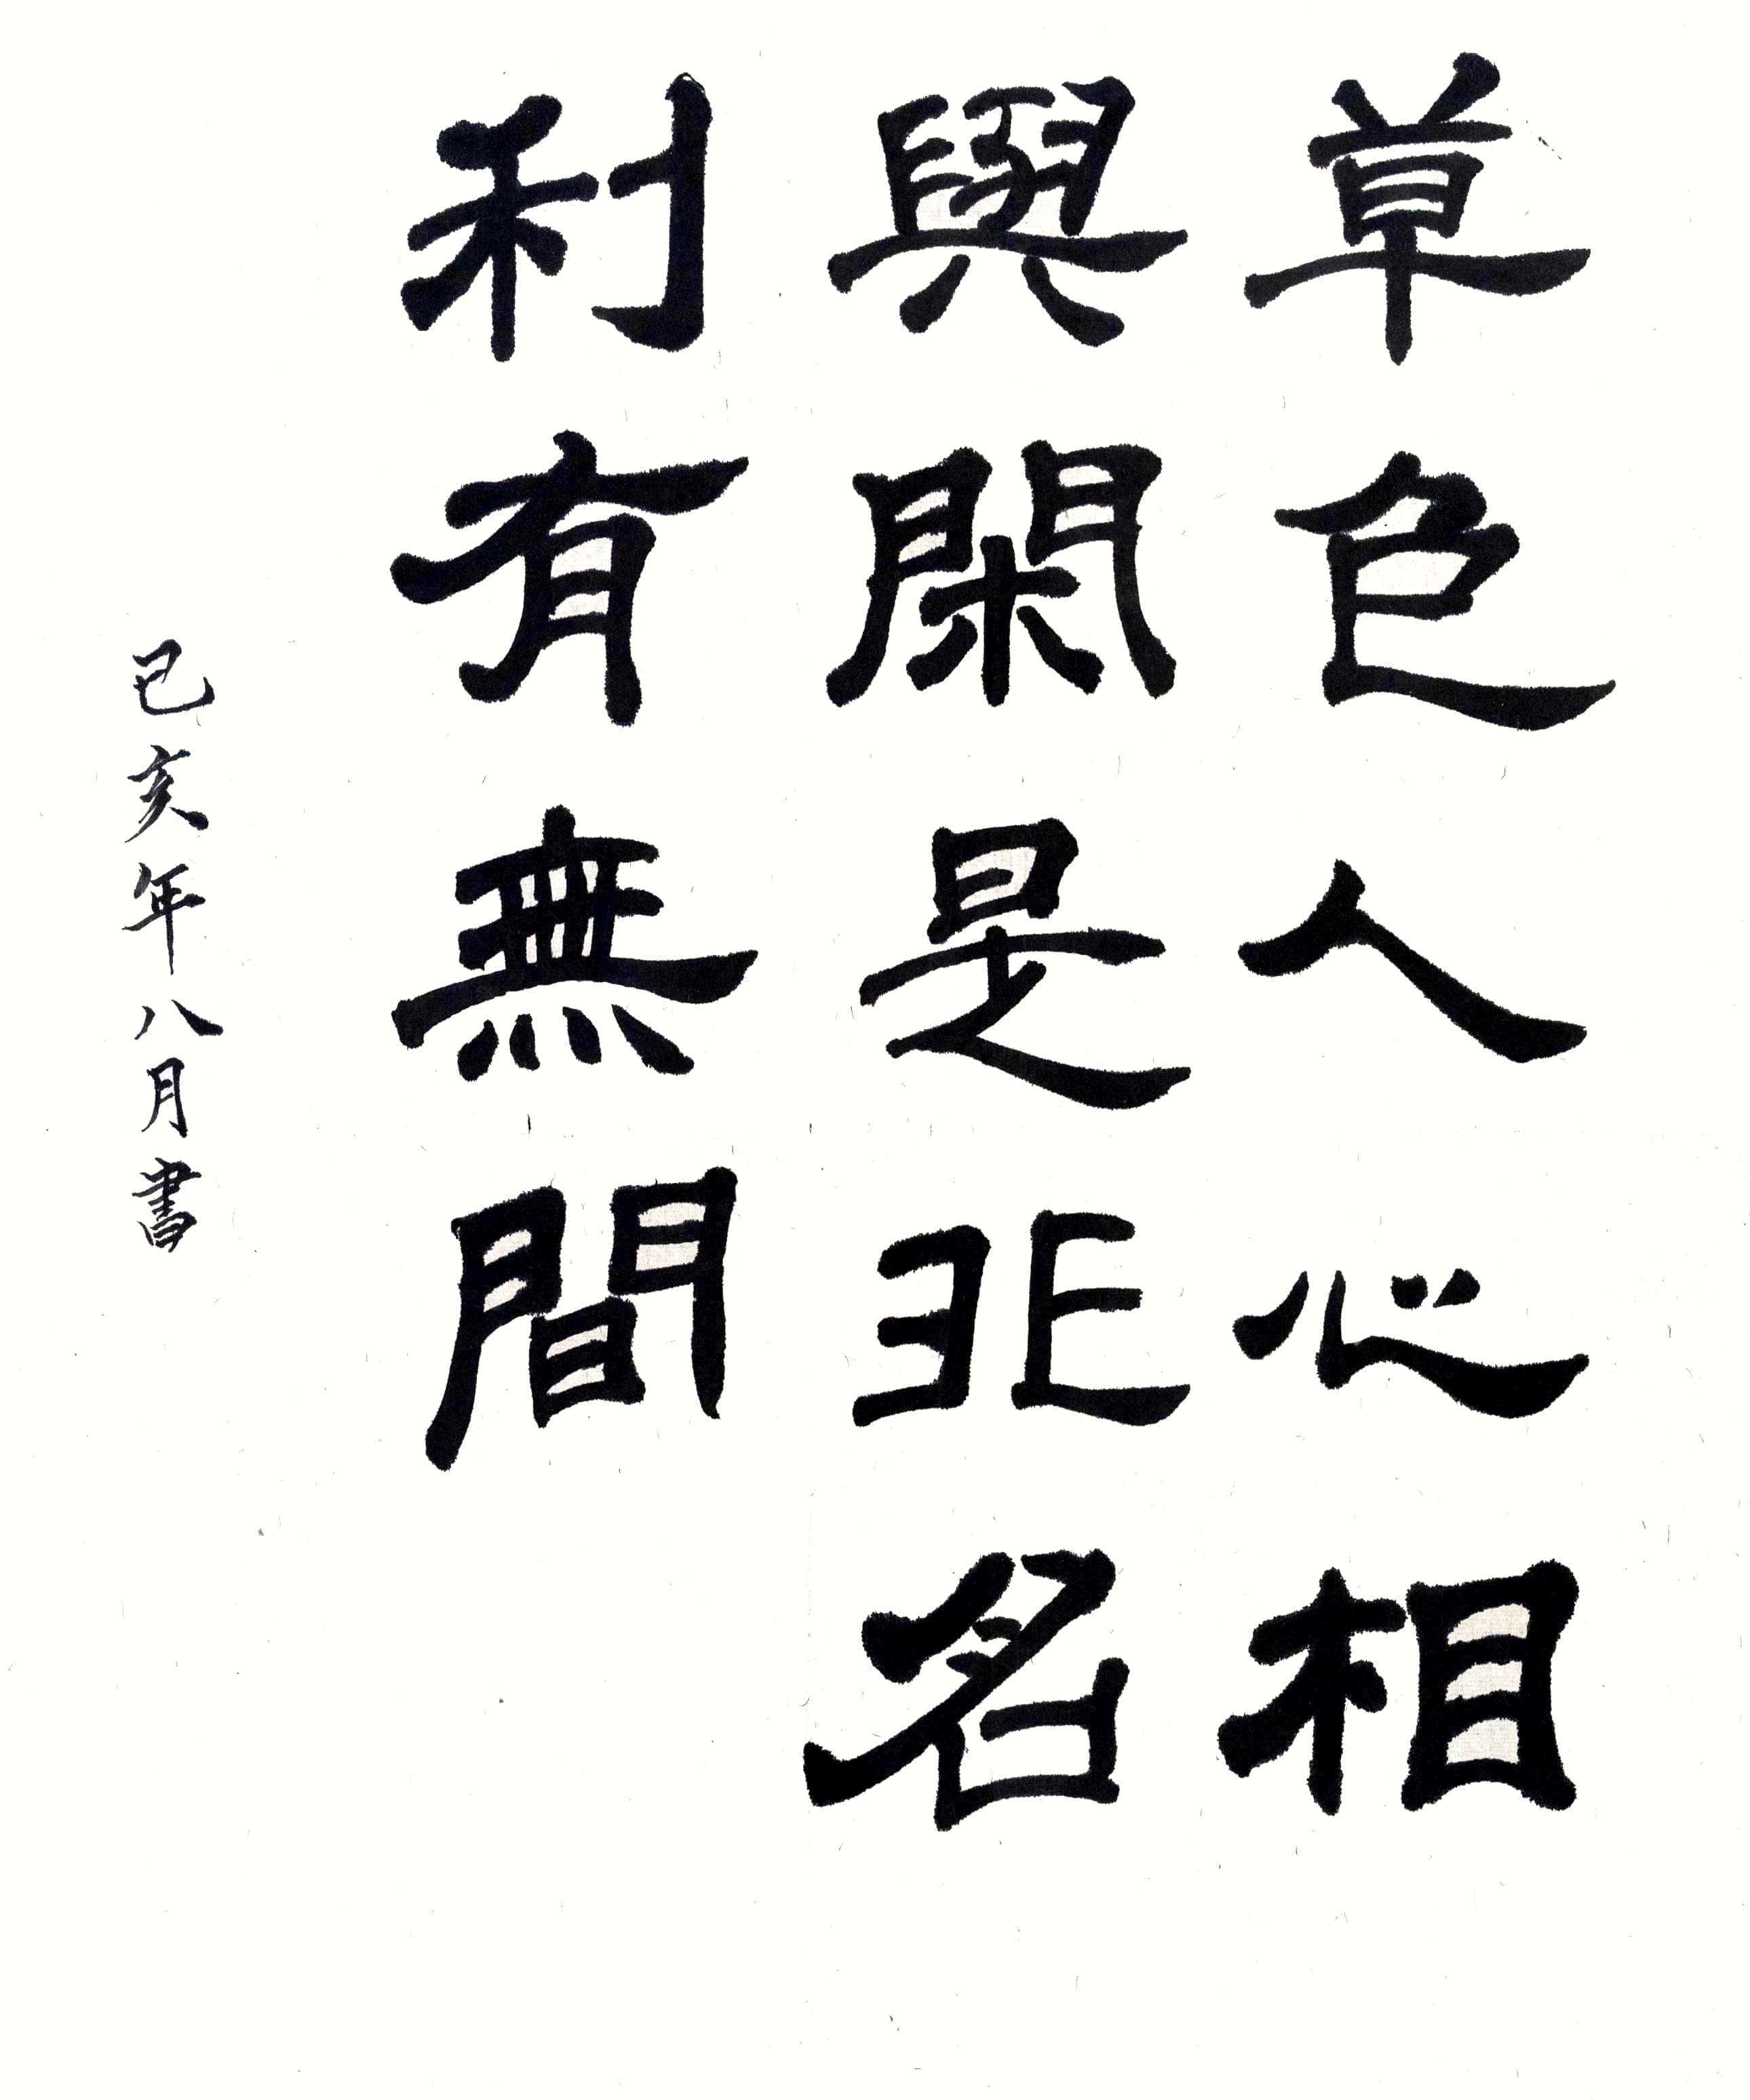 草色人心相
與閑是非名
利有無間
己亥年八月書